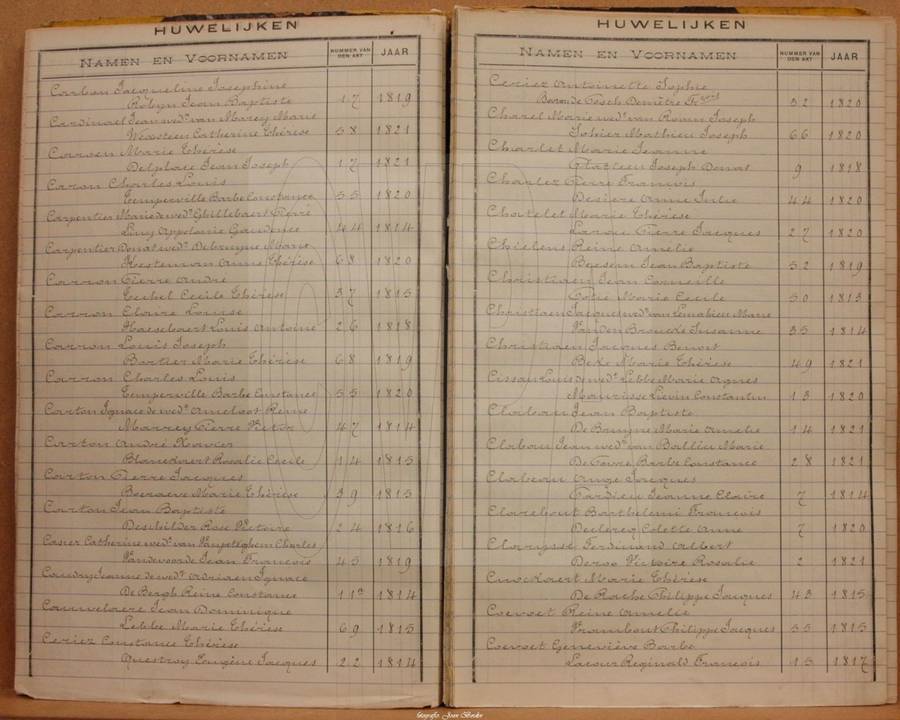 HUWELIJKEN
NAMEN EN VOORNAMEN
NUMMER VAN DEN AKT
JAAR
Carbon Jacqueline Josephine
Robyn Jean Baptiste 17 1819
Cardinael Jean wedr van Marrey Marie
Weasteen Catherine Thérèse 58 1821
Careon Marie Thérèse
Delplace Jean Joseph 17 1821
Caron Charles Louis
Temperville Barbe Constance 55 1820
Carpentier Marie de wede Ghillebaert Pierre
Luuy Appolonie Gaudence 44 1814
Carpentier Donat wedr Debruyne Marie
Hesteman Anne Thérèse 68 1820
Carron Pierre André
Techel Cecile Thérèse 37 1815
Carron Claire Louise
Haesebaert Louis Antoine 26 1818
Carron Louis Joseph
Bartier Marie Thérèse 68 1819
Carron Charles Louis
Temperville Barbe Constance 55 1820
Cartan Ignace de wedr Ameloot Reine
Marrey Pierre Victor 47 1814
Carton André Xavier
Blanckaert Rosalie Cecile 14 1815
Carton Pierre Jacques
Beeraere Marie Thérèse 39 1815
Carton Jean Baptiste
Deschilder Rose Victoire 24 1816
Casier Catherine wede van Vanpeteghem Charles
Vandevoorde Jean François 45 1819
Caudry Jeanne de wede Adriaen Ignace
De Bergh Reine Constance 11 1814
Cauwelaere Jean Dominique
Lebbe Marie Thérèse 69 1815
Ceriez Constance Thérèse
Questroy Eugène Jacques 22 1814
HUWELIJKEN
NAMEN EN VOORNAMEN
NUMMER VAN DEN AKT
JAAR
Ceriez Antoinette Sophie
Demètre 52 1820
Charel Marie wede van Jouan Joseph
Johier Mathieu Joseph 66 1820
Charlet Marie Jeanne
Joseph Donat 9 1818
Charlez Pierre François
Desiere Anne Julie 44 1820
Chatelet Marie Thérèse
Larou Pierre Jacques 27 1820
Chielens Reine Amelie
Beeseau Jean Baptiste 52 1819
Christiaen Jean Corneille
Cotie Marie Cecile 50 1813
Christiaen Jacques wedr van Lemahieu Marie
Vanden Broucke Susanne 35 1814
Christiaen Jacques Benoit
Beke Marie Thérèse 49 1821
Cissau Louis de wedr Lebbe Marie Agnes
Maurisse Lievin Constantin 13 1820
Clabau Jean Baptiste
De Bruyne Marie Amelie 14 1821
Clabau Jean wedr van Baillieu Marie
De Favre Barbe Constance 28 1821
Clabeau Ange Jacques
Tardieu Jeanne Claire 7 1814
Clarebout Barthelemi François
Declercq Colette Anne 7 1820
Clarysse Ferdinand Albert
Deroo Victoire Rosalie 2 1821
Cnockaert Marie Thérèse
De Rache Philippe Jacques 43 1815
Coevoet Reine Amelie
Vrambout Philippe Jacques 55 1815
Coevoet Geneviève Barbe
Lacour Reginald François 15 1817